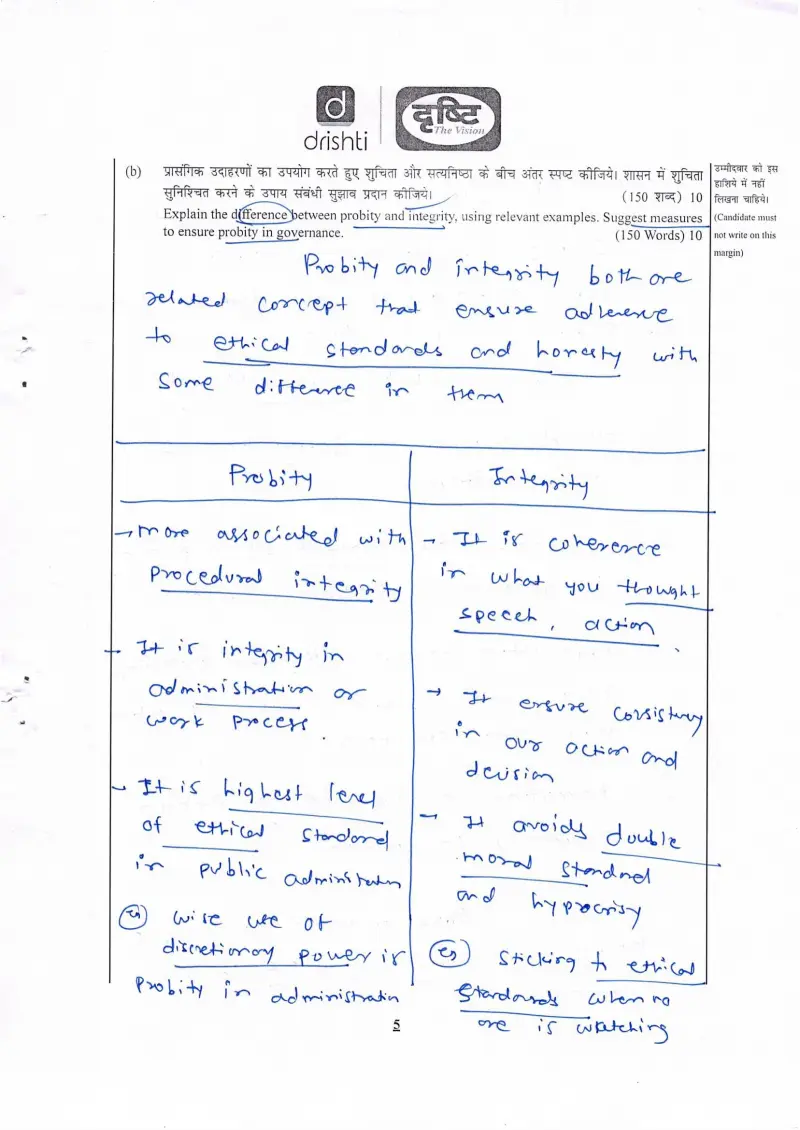 d
drishti
दृष्टि
The Vision
(b) प्रासंगिक उदाहरणों का उपयोग करते हुए शुचिता और सत्यनिष्ठा के बीच अंतर स्पष्ट कीजिये। शासन में शुचिता
सुनिश्चित करने के उपाय संबंधी सुझाव प्रदान कीजिये। (150 शब्द) 10
Explain the difference between probity and integrity, using relevant examples. Suggest measures
to ensure probity in governance. (150 Words) 10
उम्मीदवार को इस
हाशिये में नहीं
लिखना चाहिये।
(Candidate must
not write on this
margin)
Probity and integrity both are
related concept that ensure adherence
to ethical standards and honesty with
some difference in them
Probity
→ more associated with
procedural integrity
→ It is integrity in
administration or
work process.
→ It is highest level
of ethical standard
in public administration
eg wise use of
discretionary power is
probity in administration
Integrity
→ It is coherence
in what you thought
speech, action.
→ It ensure consistency
in our action and
decision
→ It avoids double
moral standard
and hypocrisy
eg sticking to ethical
standards when no
one is watching
5